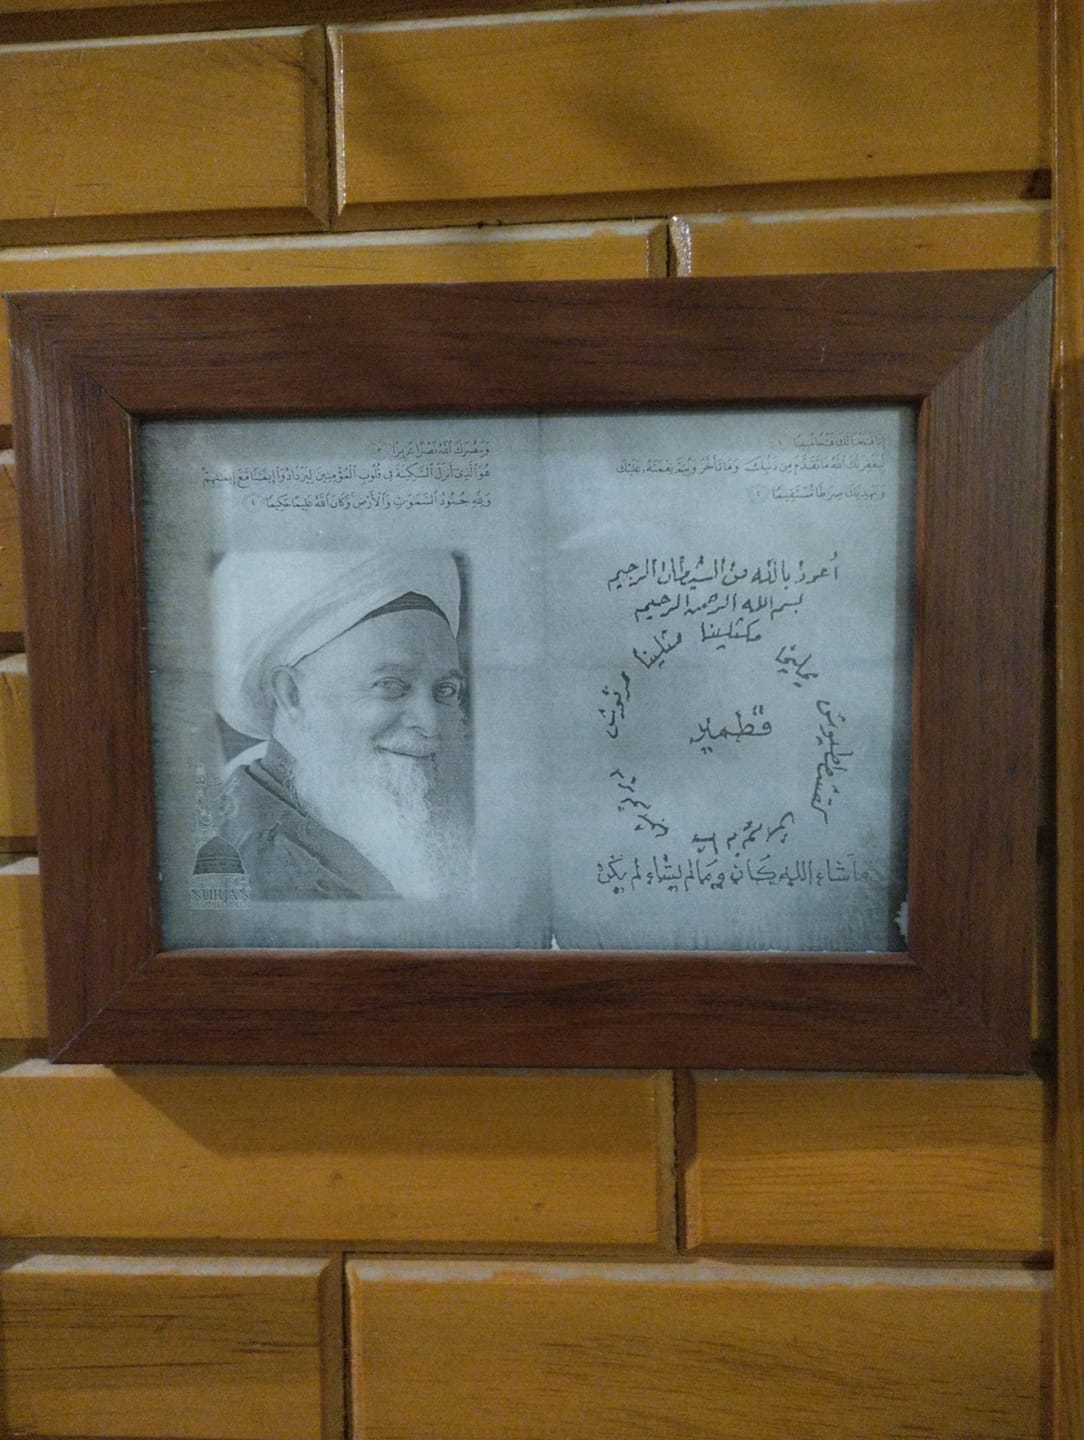 إِنَّا فَتَحْنَا لَكَ فَتْحًا مُّبِينًا ١
لِّيَغْفِرَ لَكَ ٱللَّهُ مَا تَقَدَّمَ مِن ذَنۢبِكَ وَمَا تَأَخَّرَ وَيُتِمَّ نِعْمَتَهُۥ عَلَيْكَ
وَيَهْدِيَكَ صِرَٰطًا مُّسْتَقِيمًا
وَيَنصُرَكَ ٱللَّهُ نَصْرًا عَزِيزًا
هُوَ ٱلَّذِىٓ أَنزَلَ ٱلسَّكِينَةَ فِى قُلُوبِ ٱلْمُؤْمِنِينَ لِيَزْدَادُوٓا۟ إِيمَٰنًا مَّعَ إِيمَٰنِهِمْ
وَلِلَّهِ جُنُودُ ٱلسَّمَٰوَٰتِ وَٱلْأَرْضِ وَكَانَ ٱللَّهُ عَلِيمًا حَكِيمًا
أعوذ بالله من الشيطان الرجيم
بسم الله الرحمن الرحيم
يمليخا
مكثلينا
مثلينا
مرنوش
قطمير
ما شاء الله كان وما لم يشاء لم يكن
NURJAN